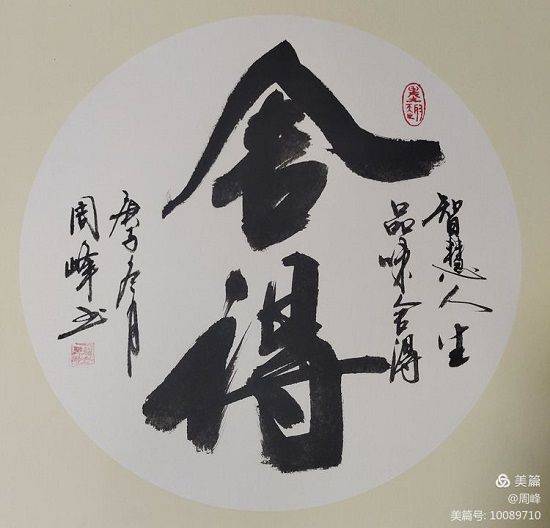 智慧人生
品味舍得
舍得
庚子冬月
周峰书
美篇
@周峰
美篇号: 10089710